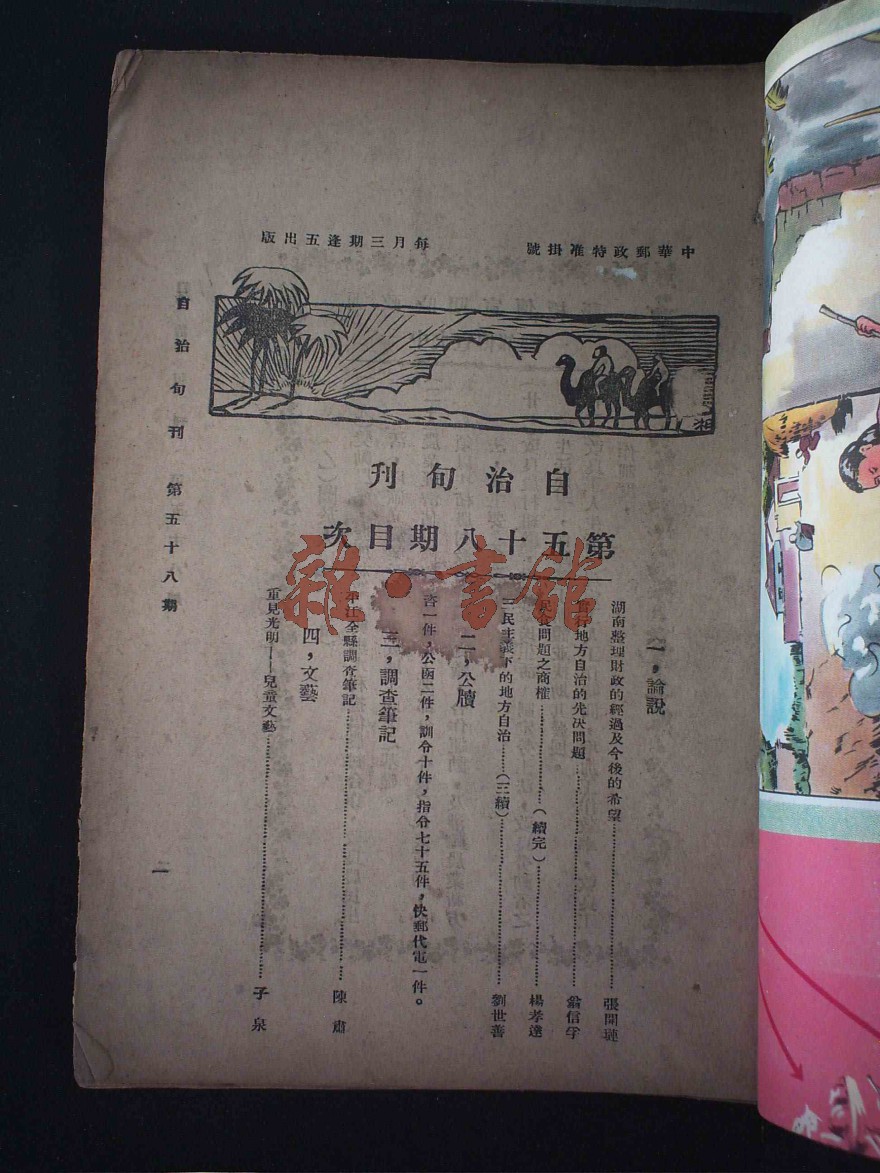 中華郵政特准掛號
每月三期逢五出版
自治旬刊
第五十八期目次
一，論說
湖南整理財政的經過及今後的希望 張開璉
行地方自治的先決問題 翁信孚
食問題之商榷（續完） 楊孝達
三民主義下的地方自治（三續） 劉世善
二，公牘
咨一件，公函二件，訓令十件，指令七十五件，快郵代電一件。
三，調查筆記
平江全縣調查筆記 陳肅
四，文藝
重見光明——兒童文藝 子泉
自治旬刊 第五十八期
雜·書館